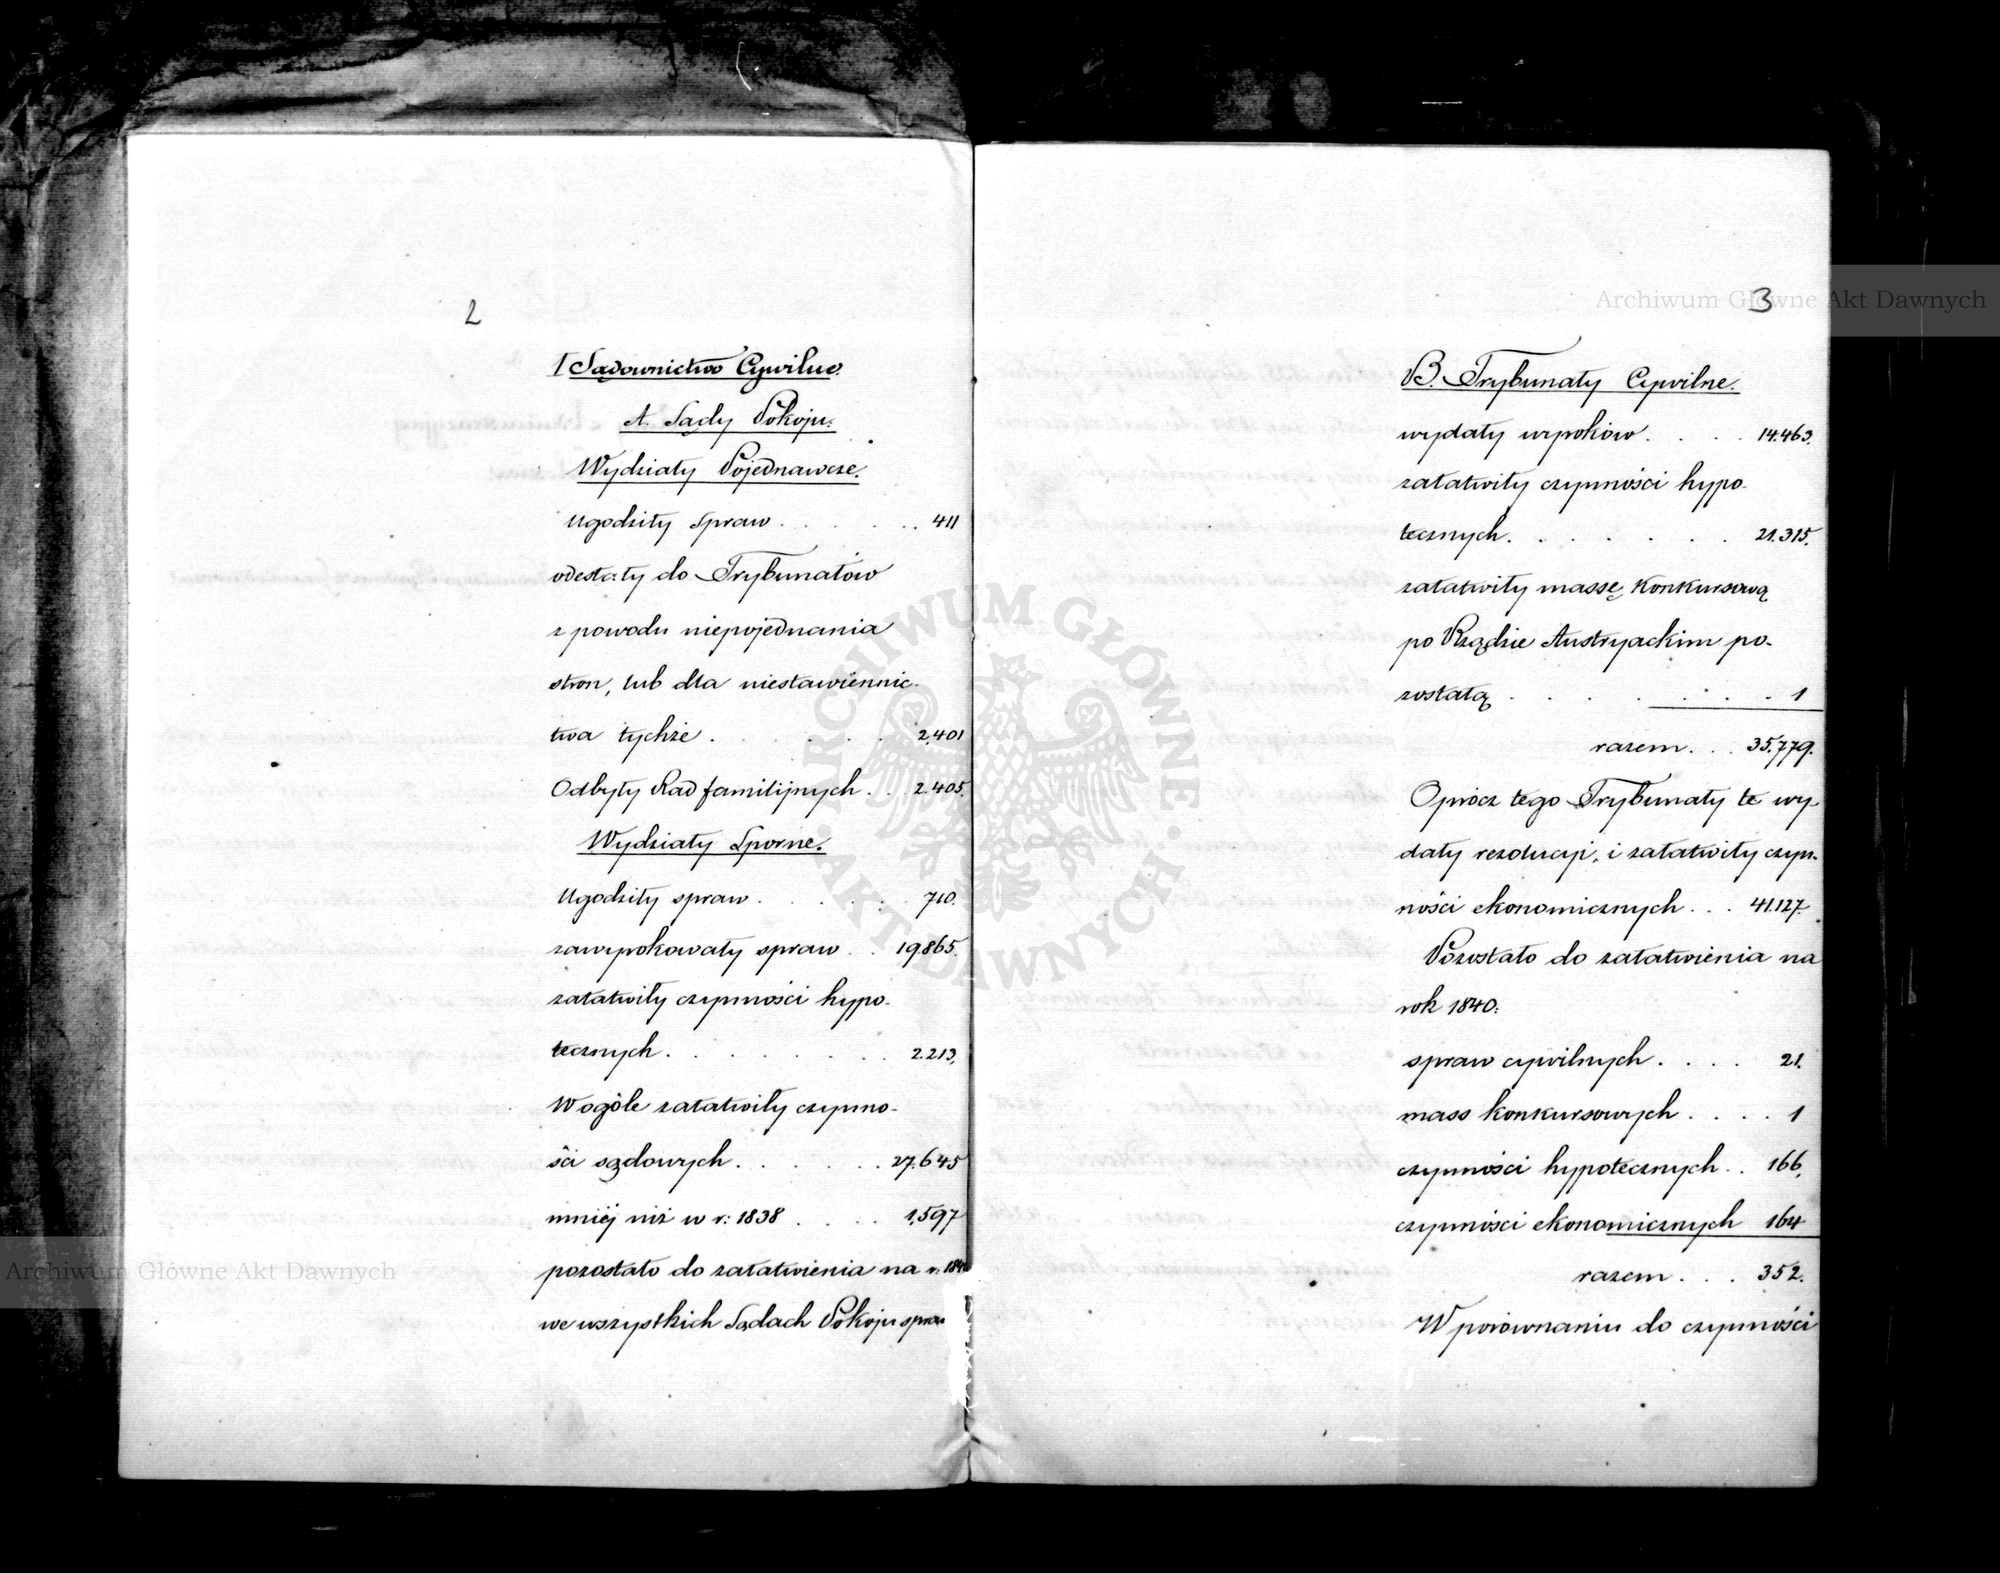 2
I Sądownictwo Cywilne.
A. Sądy Pokoju.
Wydziały Pojednawcze.
Ugodziły Spraw . . . . . . . 411
odesłały do Trybunałów
z powodu niepojednania
stron, lub dla niestawiennic-
twa tychże . . . . . 2,401
Odbyły Rad familijnych . . 2.405.
Wydziały Sporne.
Ugodziły spraw . . . . . 710.
zawyrokowały spraw . . 19,865.
załatwiły czynności hypo-
tecznych . . . . . . . 2.213.
W ogóle załatwiły czynno-
ści sądowych . . . . . . 27.645
mniéj niż w r: 1838 . . . . 1,597
pozostało do załatwienia na r. 184
we wszystkich Sądach Pokoju spraw
3
B. Trybunały Cywilne.
wydały wyroków . . . . 14.463.
załatwiły czynności hypo-
tecznych . . . . . . . 21.315.
załatwiły massę konkursową
po Rządzie Austryackim po-
zostałą . . . . . . . 1
razem . . . 35.779.
Oprócz tego Trybunały te wy-
dały rezolucyi, i załatwiły czyn-
ności ekonomicznych . . . 41.127.
Pozostało do załatwienia na
rok 1840:
spraw cywilnych . . . . 21.
mass konkursowych . . . . 1
czynności hypotecznych . . 166,
czynności ekonomicznych 164
razem . . . 352.
W porównaniu do czynności
Archiwum Główne Akt Dawnych
Archiwum Główne Akt Dawnych
ARCHIWUM GŁÓWNE AKT DAWNYCH